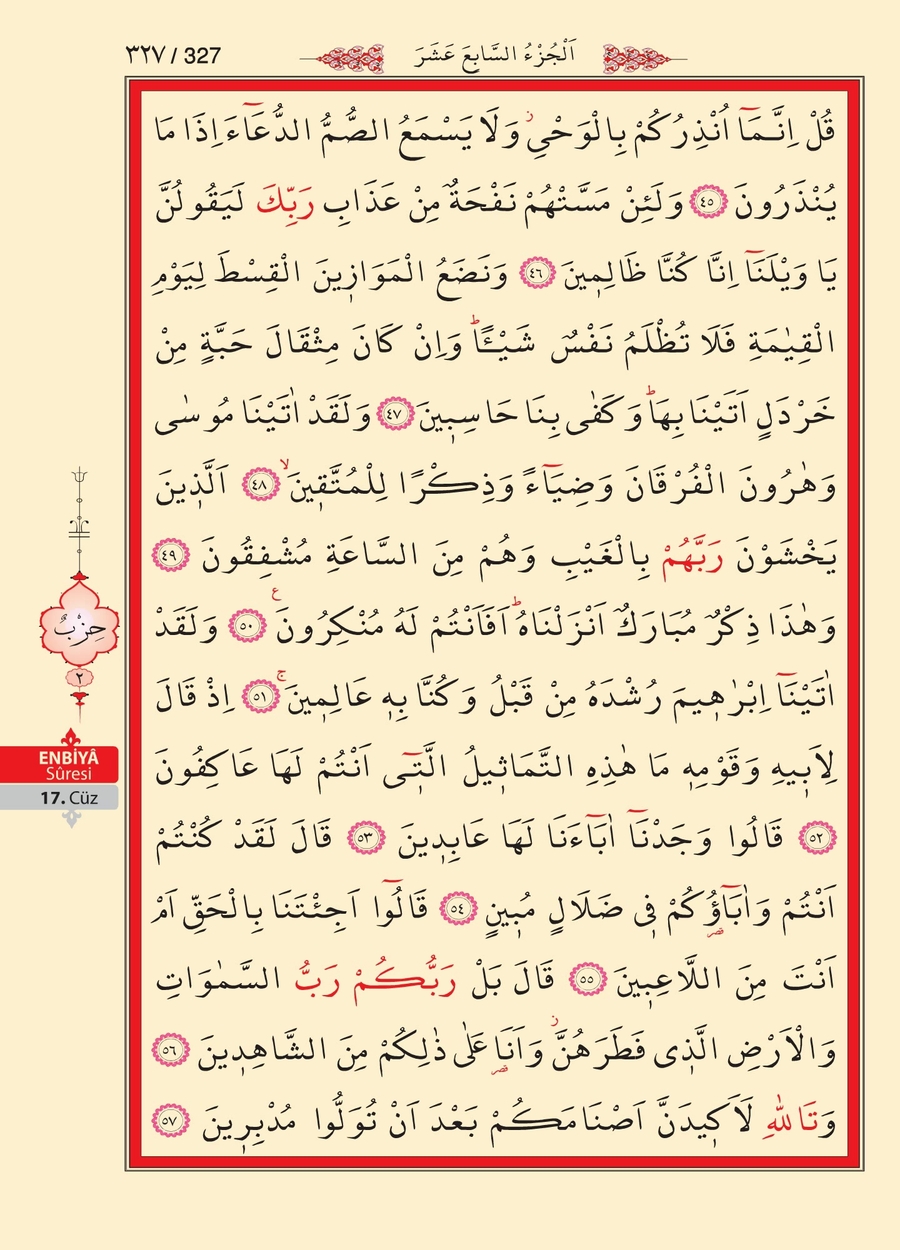 ٣٢٧ / 327
اَلْجُزْءُ السَّابِعَ عَشَرَ
قُلْ اِنَّـمَٓا اُنْذِرُكُمْ بِالْوَحْيِۘ وَلَا يَسْمَعُ الصُّمُّ الدُّعَٓاءَ اِذَا مَا
يُنْذَرُونَ ﴿٤٥﴾ وَلَئِنْ مَسَّتْهُمْ نَفْحَةٌ مِنْ عَذَابِ رَبِّكَ لَيَقُولُنَّ
يَا وَيْلَنَٓا اِنَّا كُنَّا ظَالِمٖينَ ﴿٤٦﴾ وَنَضَعُ الْمَوَازٖينَ الْقِسْطَ لِيَوْمِ
الْقِيٰمَةِ فَلَا تُظْلَمُ نَفْسٌ شَيْـًٔاؕ وَاِنْ كَانَ مِثْقَالَ حَبَّةٍ مِنْ
خَرْدَلٍ اَتَيْنَا بِهَاؕ وَكَفٰى بِنَا حَاسِبٖينَ ﴿٤٧﴾ وَلَقَدْ اٰتَيْنَا مُوسٰى
وَهٰرُونَ الْفُرْقَانَ وَضِيَٓاءً وَذِكْرًا لِلْمُتَّقٖينَۙ ﴿٤٨﴾ اَلَّذٖينَ
يَخْشَوْنَ رَبَّهُمْ بِالْغَيْبِ وَهُمْ مِنَ السَّاعَةِ مُشْفِقُونَ ﴿٤٩﴾
وَهٰذَا ذِكْرٌ مُبَارَكٌ اَنْزَلْنَاهُؕ اَفَاَنْتُمْ لَهُ مُنْكِرُونَ ع ﴿٥٠﴾ وَلَقَدْ
اٰتَيْنَٓا اِبْرٰهٖيمَ رُشْدَهُ مِنْ قَبْلُ وَكُنَّا بِهٖ عَالِمٖينَۚ ﴿٥١﴾ اِذْ قَالَ
لِاَبٖيهِ وَقَوْمِهٖ مَا هٰذِهِ التَّمَاثٖيلُ الَّتٖٓى اَنْتُمْ لَهَا عَاكِفُونَ
﴿٥٢﴾ قَالُوا وَجَدْنَٓا اٰبَٓاءَنَا لَهَا عَابِدٖينَ ﴿٥٣﴾ قَالَ لَقَدْ كُنْتُمْ
اَنْتُمْ وَاٰبَٓاؤُكُمْ فٖى ضَلَالٍ مُبٖينٍ ﴿٥٤﴾ قَالُٓوا اَجِئْتَنَا بِالْحَقِّ اَمْ
اَنْتَ مِنَ اللَّاعِبٖينَ ﴿٥٥﴾ قَالَ بَلْ رَبُّكُمْ رَبُّ السَّمٰوَاتِ
وَالْاَرْضِ الَّذٖى فَطَرَهُنَّؗ وَاَنَا عَلٰى ذٰلِكُمْ مِنَ الشَّاهِدٖينَ ﴿٥٦﴾
وَتَاللّٰهِ لَاَكٖيدَنَّ اَصْنَامَكُمْ بَعْدَ اَنْ تُوَلُّوا مُدْبِرٖينَ ﴿٥٧﴾
حِزْبٌ
٢
ENBİYÂ
Sûresi
17. Cüz